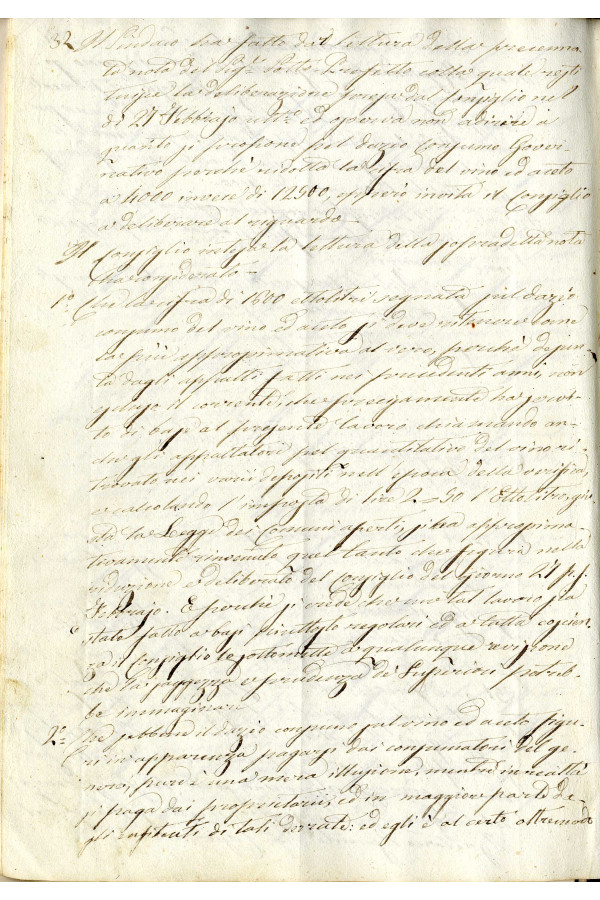 32 Il Sindaco ha fatto dar lettura della precenna
ta nota del Sig.r Sotto Prefetto colla quale resti
tuisce la deliberazione presa dal Consiglio nel
dì 27 Febbrajo ult.o ed opina non aderire a
quanto si propone pel dazio Consumo Gover
nativo perchè ridotta la cifra del vino ed aceto
a 4000 invece di 12900, epperò invita il Consiglio
a deliberare al riguardo
Il Consiglio intesa la lettura della sopradetta nota
ha considerato
1.o Che la cifra di 1800 ettolitri segnata pel dazio
consumo del vino ed aceto si deve ritenere come
la più approssimativa al vero, perchè
ta dagli appalti fatti nei precedenti anni, non
il corrente, che precisamente ha servi
to di base al presente lavoro, chiamando an
che gli appaltatori pel quantitativo del vino ri
trovato nei varii depositi nell'epoca della verifica,
e calcolando l'imposta di lire 2=50 l'Ettolitro, giu
sta la Legge dei Comuni aperti, si ha approssima
tivamente rinvenuto quel tanto che figura nella
riduzione e deliberato del Consiglio del giorno 27 p.p.
Febbrajo. E perchè si crede che un tal lavoro sia
stato fatto a basi regolari ed a tutta coscien
za il Consiglio lo sottomette a qualunque revisione
che la saggezza e prudenza di Superiori potreb-
be immaginare
2.o Che sebbene il dazio consumo sul vino ed aceto figu
ri in apparenza pagarsi dai consumatori del ge
nere, pure è una mera illusione, mentre in realtà
si paga dai proprietarii, ed in maggiore parte da
gli di tali derrate: ed egli è al certo oltremodo